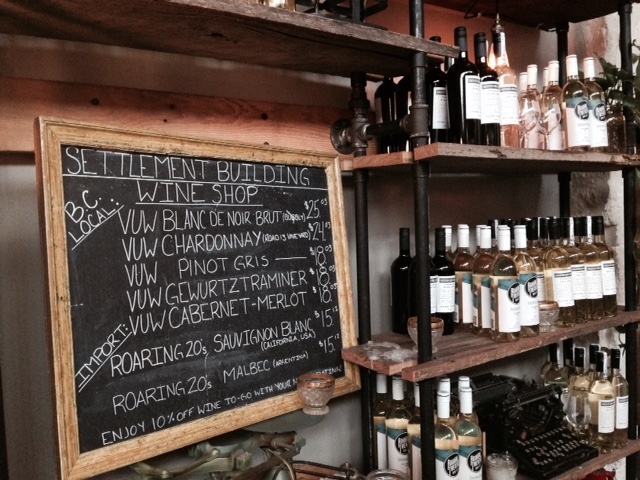 SETTLEMENT BUILDING
WINE SHOP
B.C.
LOCAL:
VUW BLANC DE NOIR BRUT (BUBBLY) $25.
VUW CHARDONNAY $24.
VUW PINOT GRIS — $18.
VUW GEWURTZTRAMINER $18.
VUW CABERNET-MERLOT $18.
IMPORT:
ROARING 20s, SAUVIGNON BLANC $15.
(CALIFORNIA, USA)
ROARING 20s MALBEC (ARGENTINA) $15.
ENJOY 10% OFF WINE TO-GO WITH YOUR